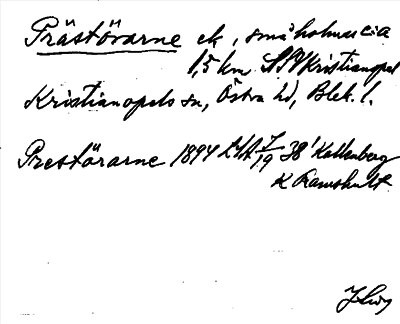 Prästörarne ek, små holmar cia
1,5 km SSV Kristianopel
Kristianopels sn, Östra hd, Blek. l.
Prestörarne 1894 LSA 7/19 38' Kallenberg
K Ramshult